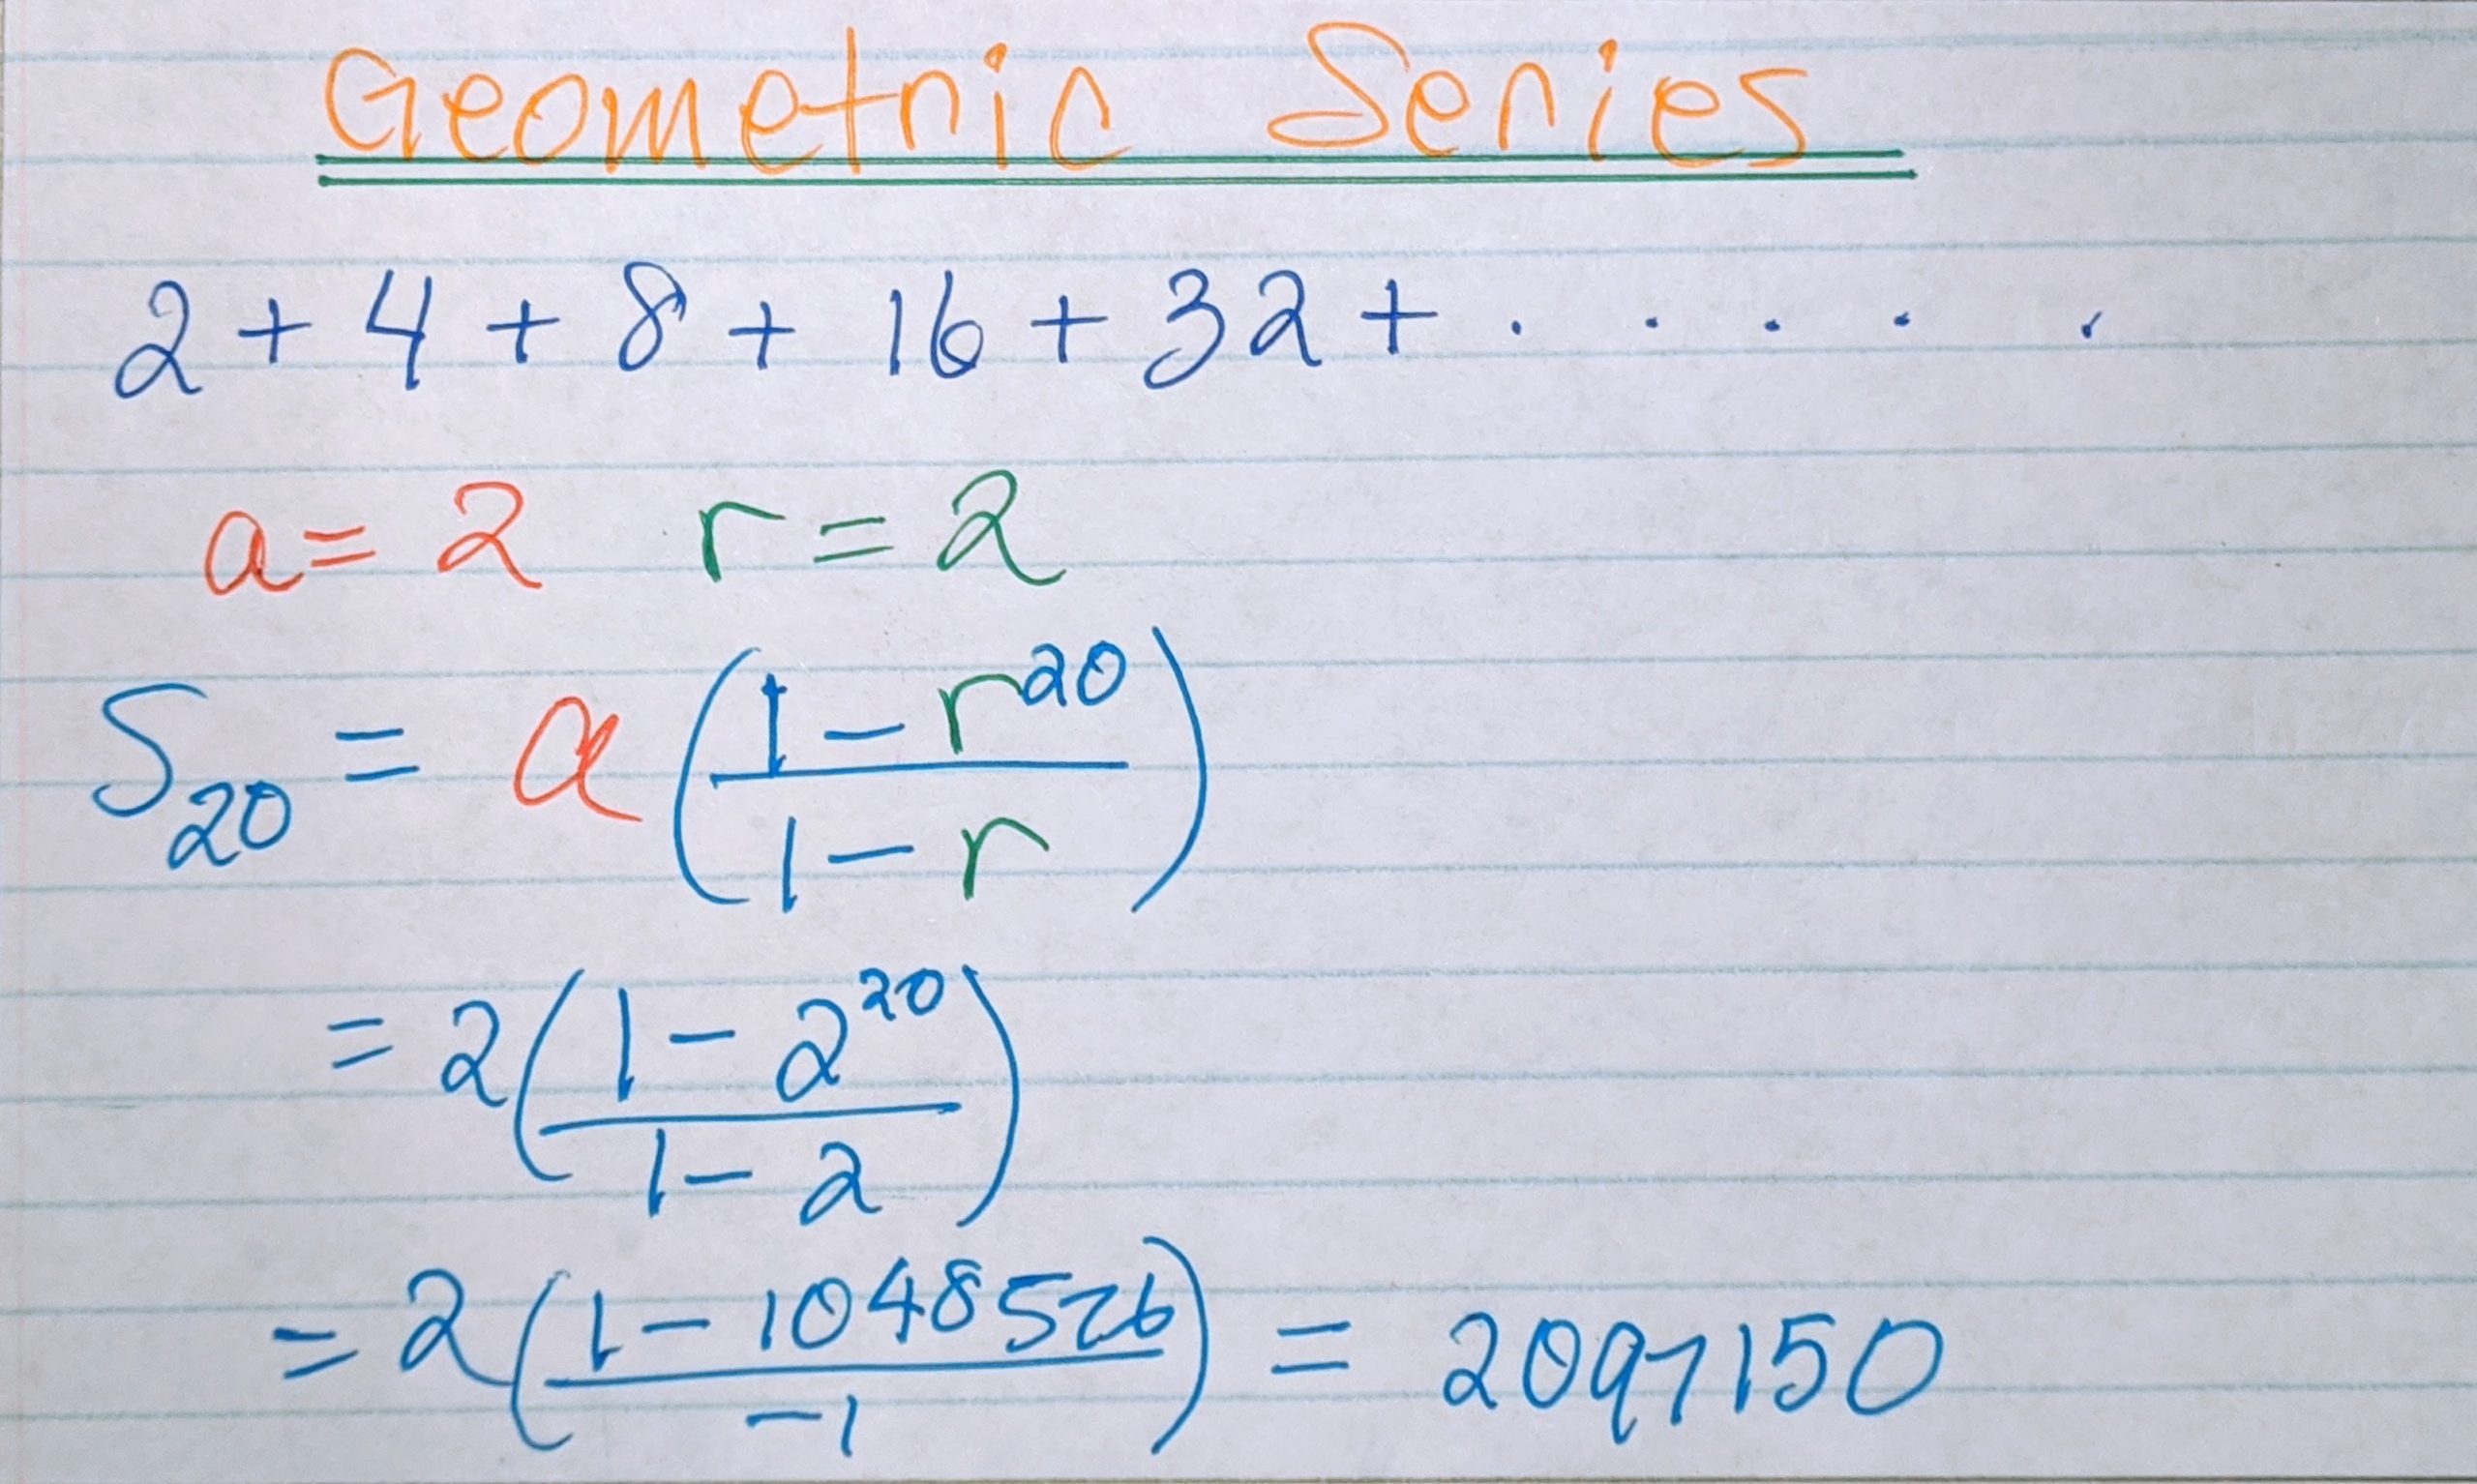 Geometric Series
2 + 4 + 8 + 16 + 32 + . . . . .
a = 2 r = 2
S₂₀ = a ((1 - r²⁰)/(1 - r))
= 2 ((1 - 2²⁰)/(1 - 2))
= 2 ((1 - 1048576)/(-1)) = 2097150